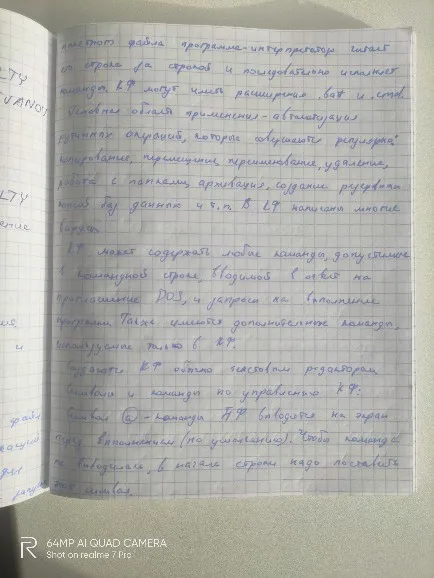 LTY
пакетного файла программа-интерпретатор читает
его строка за строкой и последовательно исполняет
команды. КФ могут иметь расширения .bat и .cmd.
Основная область применения - автоматизация
рутинных операций, которые совершаются регулярно:
копирование, перемещение, переименование, удаление,
работа с папками, архивация, создание резервных
копий баз данных и т.п. В КФ написаны многие
КФ может содержать любые команды, допустимые
в командной строке, вводимой в ответ на
приглашение DOS, и запросы на выполнение
программ. Также имеются дополнительные команды,
используемые только в КФ.
КФ обычно текстовым редактором
Символы и команды по управлению КФ:
Символ @ - команды ПФ выводятся на экран
перед выполнением (по умолчанию). Чтобы команда
не выводилась, в начале строки надо поставить
этот символ.
LTY
и
файл
64MP AI QUAD CAMERA
Shot on realme 7 Pro